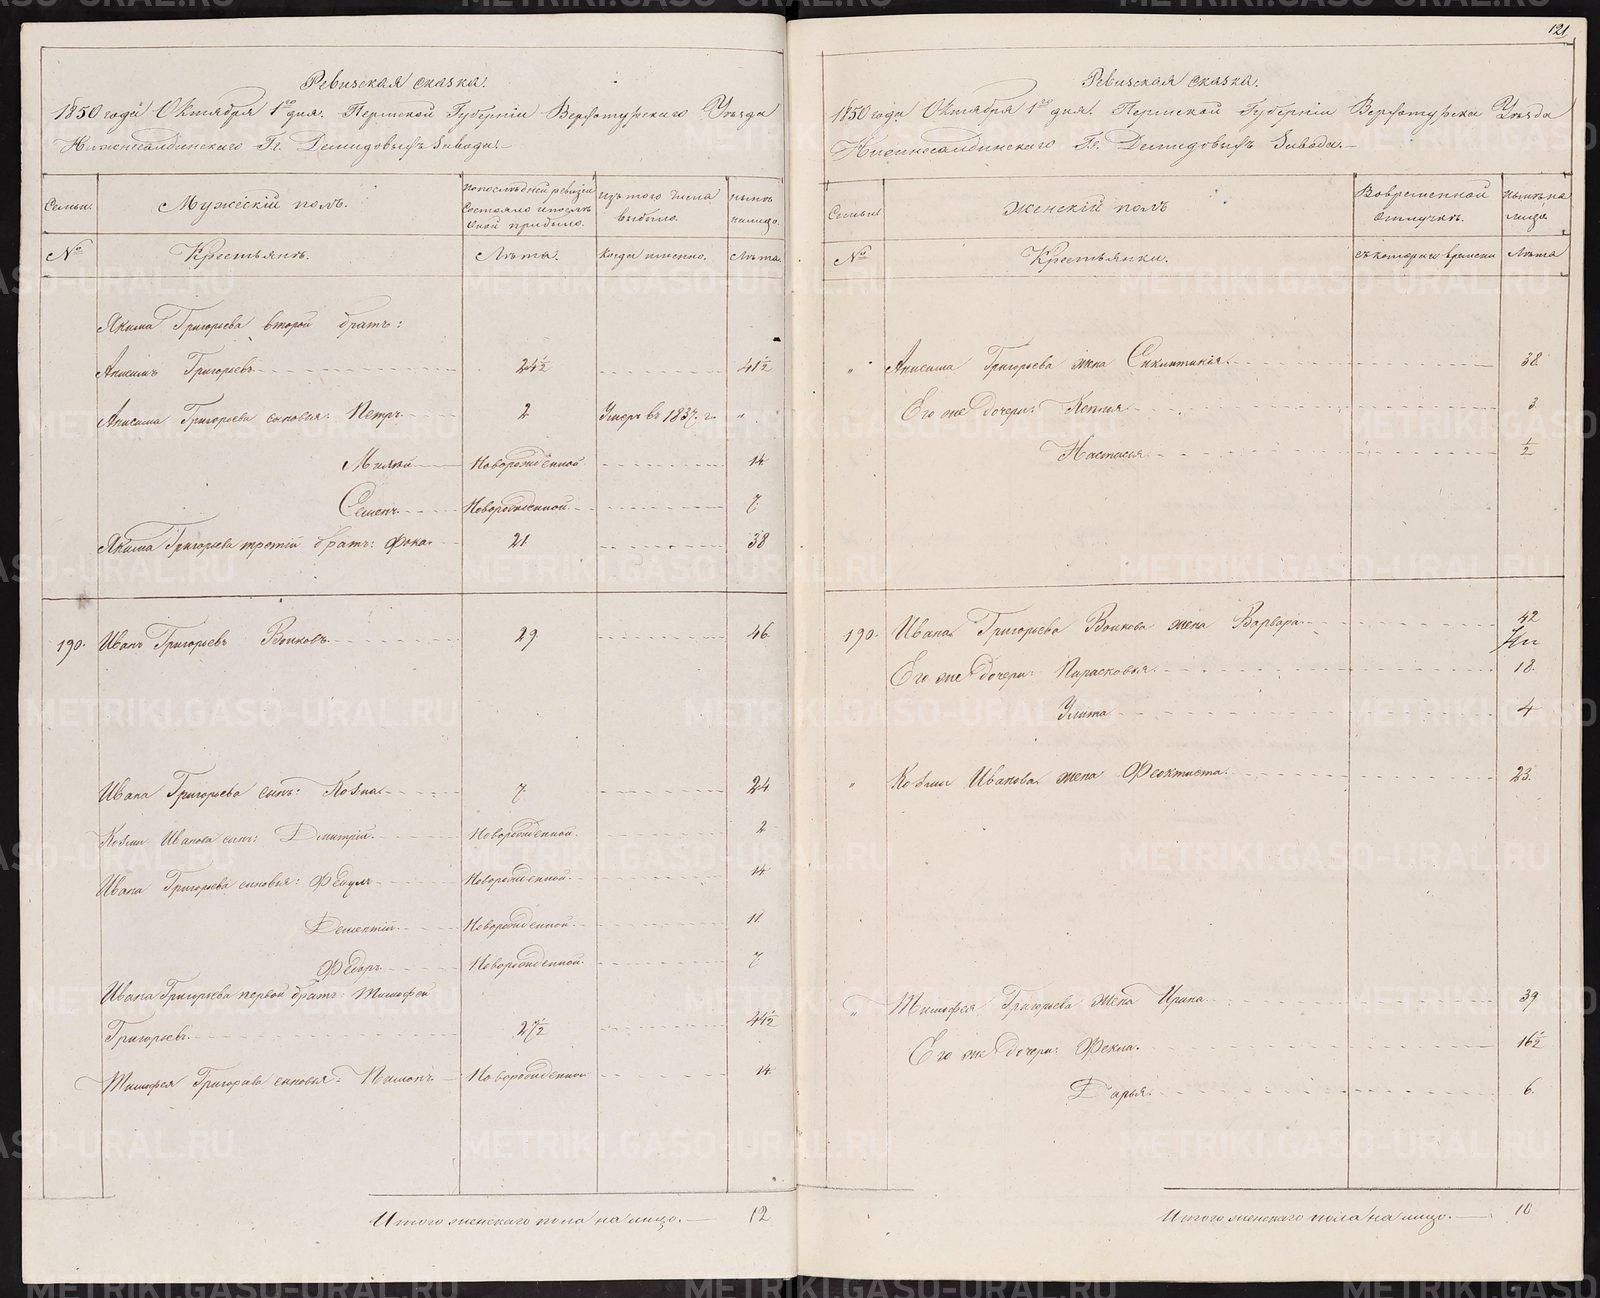 Ревизская сказка.
1850 года Октября 1го дня. Пермской Губернiи Верхотурскаго Уѣзда
Нижнесалдинскаго Гг. Демидовыхъ Завода.
Семьи.
Мужескiй полъ.
По послѣдней ревизiи
состояло и послѣ
оной прибыло.
Изъ того числа
выбыло.
нынѣ
налицо.
№
Крестьянъ.
Лѣта.
Когда именно.
Лѣта.
Акима Григорьева второй братъ:
Анисимъ Григорьевъ 24½ 41½
Анисима Григорьева сыновья: Петръ 2 Умеръ въ 1837 г. "
новорожденной 14
Семенъ. новорожденной 7
Акима Григорьева третiй братъ: Фока. 21 38
190. Иванъ Григорьевъ Волковъ 29 46
Ивана Григорьева сынъ: Козма 7 24
Козмы Иванова сынъ: Дмитрiй. новорожденной 2
Ивана Григорьева сыновья: Федулъ новорожденной 14
Дементiй новорожденной 11
Федоръ новорожденной 7
Ивана Григорьева первой братъ: Тимофей
Григорьевъ. 27½ 44½
Тимофея Григорьева сыновья: Пименъ новорожденной 14
Итого женскаго пола на лицо. 12
121
Ревизская сказка.
1850 года Октября 1го дня. Пермской Губернiи Верхотурска Уѣзда
Нижнесалдинскаго Гг. Демидовыхъ Завода.
Семьи
Женскiй полъ
Во временной
отлучкѣ.
Нынѣ на
лицо.
№
Крестьянки.
съ котораго времени
Лѣта
" Анисима Григорьева жена Синклитикiя. 38
Его же дочери: Ксенiя 3
Настасья ½
190. Ивана Григорьева Волкова жена Варвара 42
Его же дочери: Парасковья. 18
Улита 4
" Козмы Иванова жена Феоктиста. 23
" Тимофея Григорьева жена Ирина 39
Его же дочери: Фекла. 16½
Дарья. 6.
Итого женскаго пола на лицо. 10
METRIKI.GASO-URAL.RU